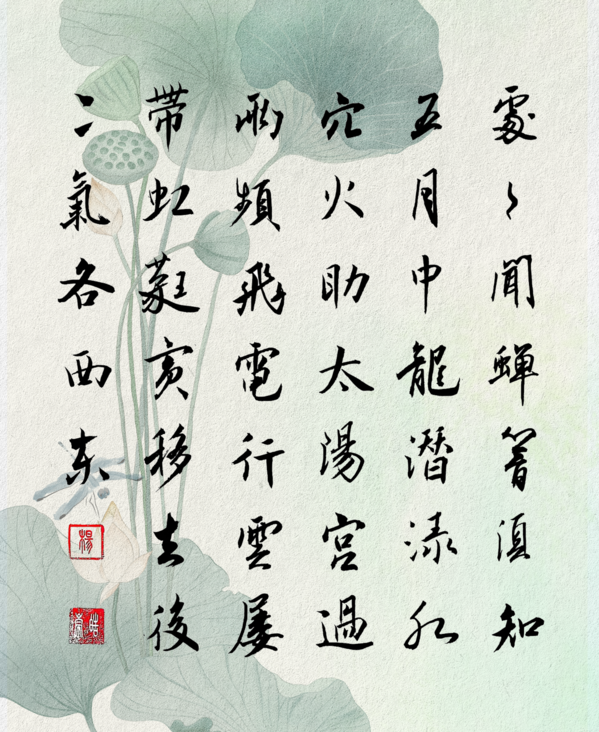 處〻聞蟬響須知
五月中龍潛渌水
穴火助太陽宮過
雨頻飛電行雲屢
帶虹蕤賓移去後
二氣各西东
楊